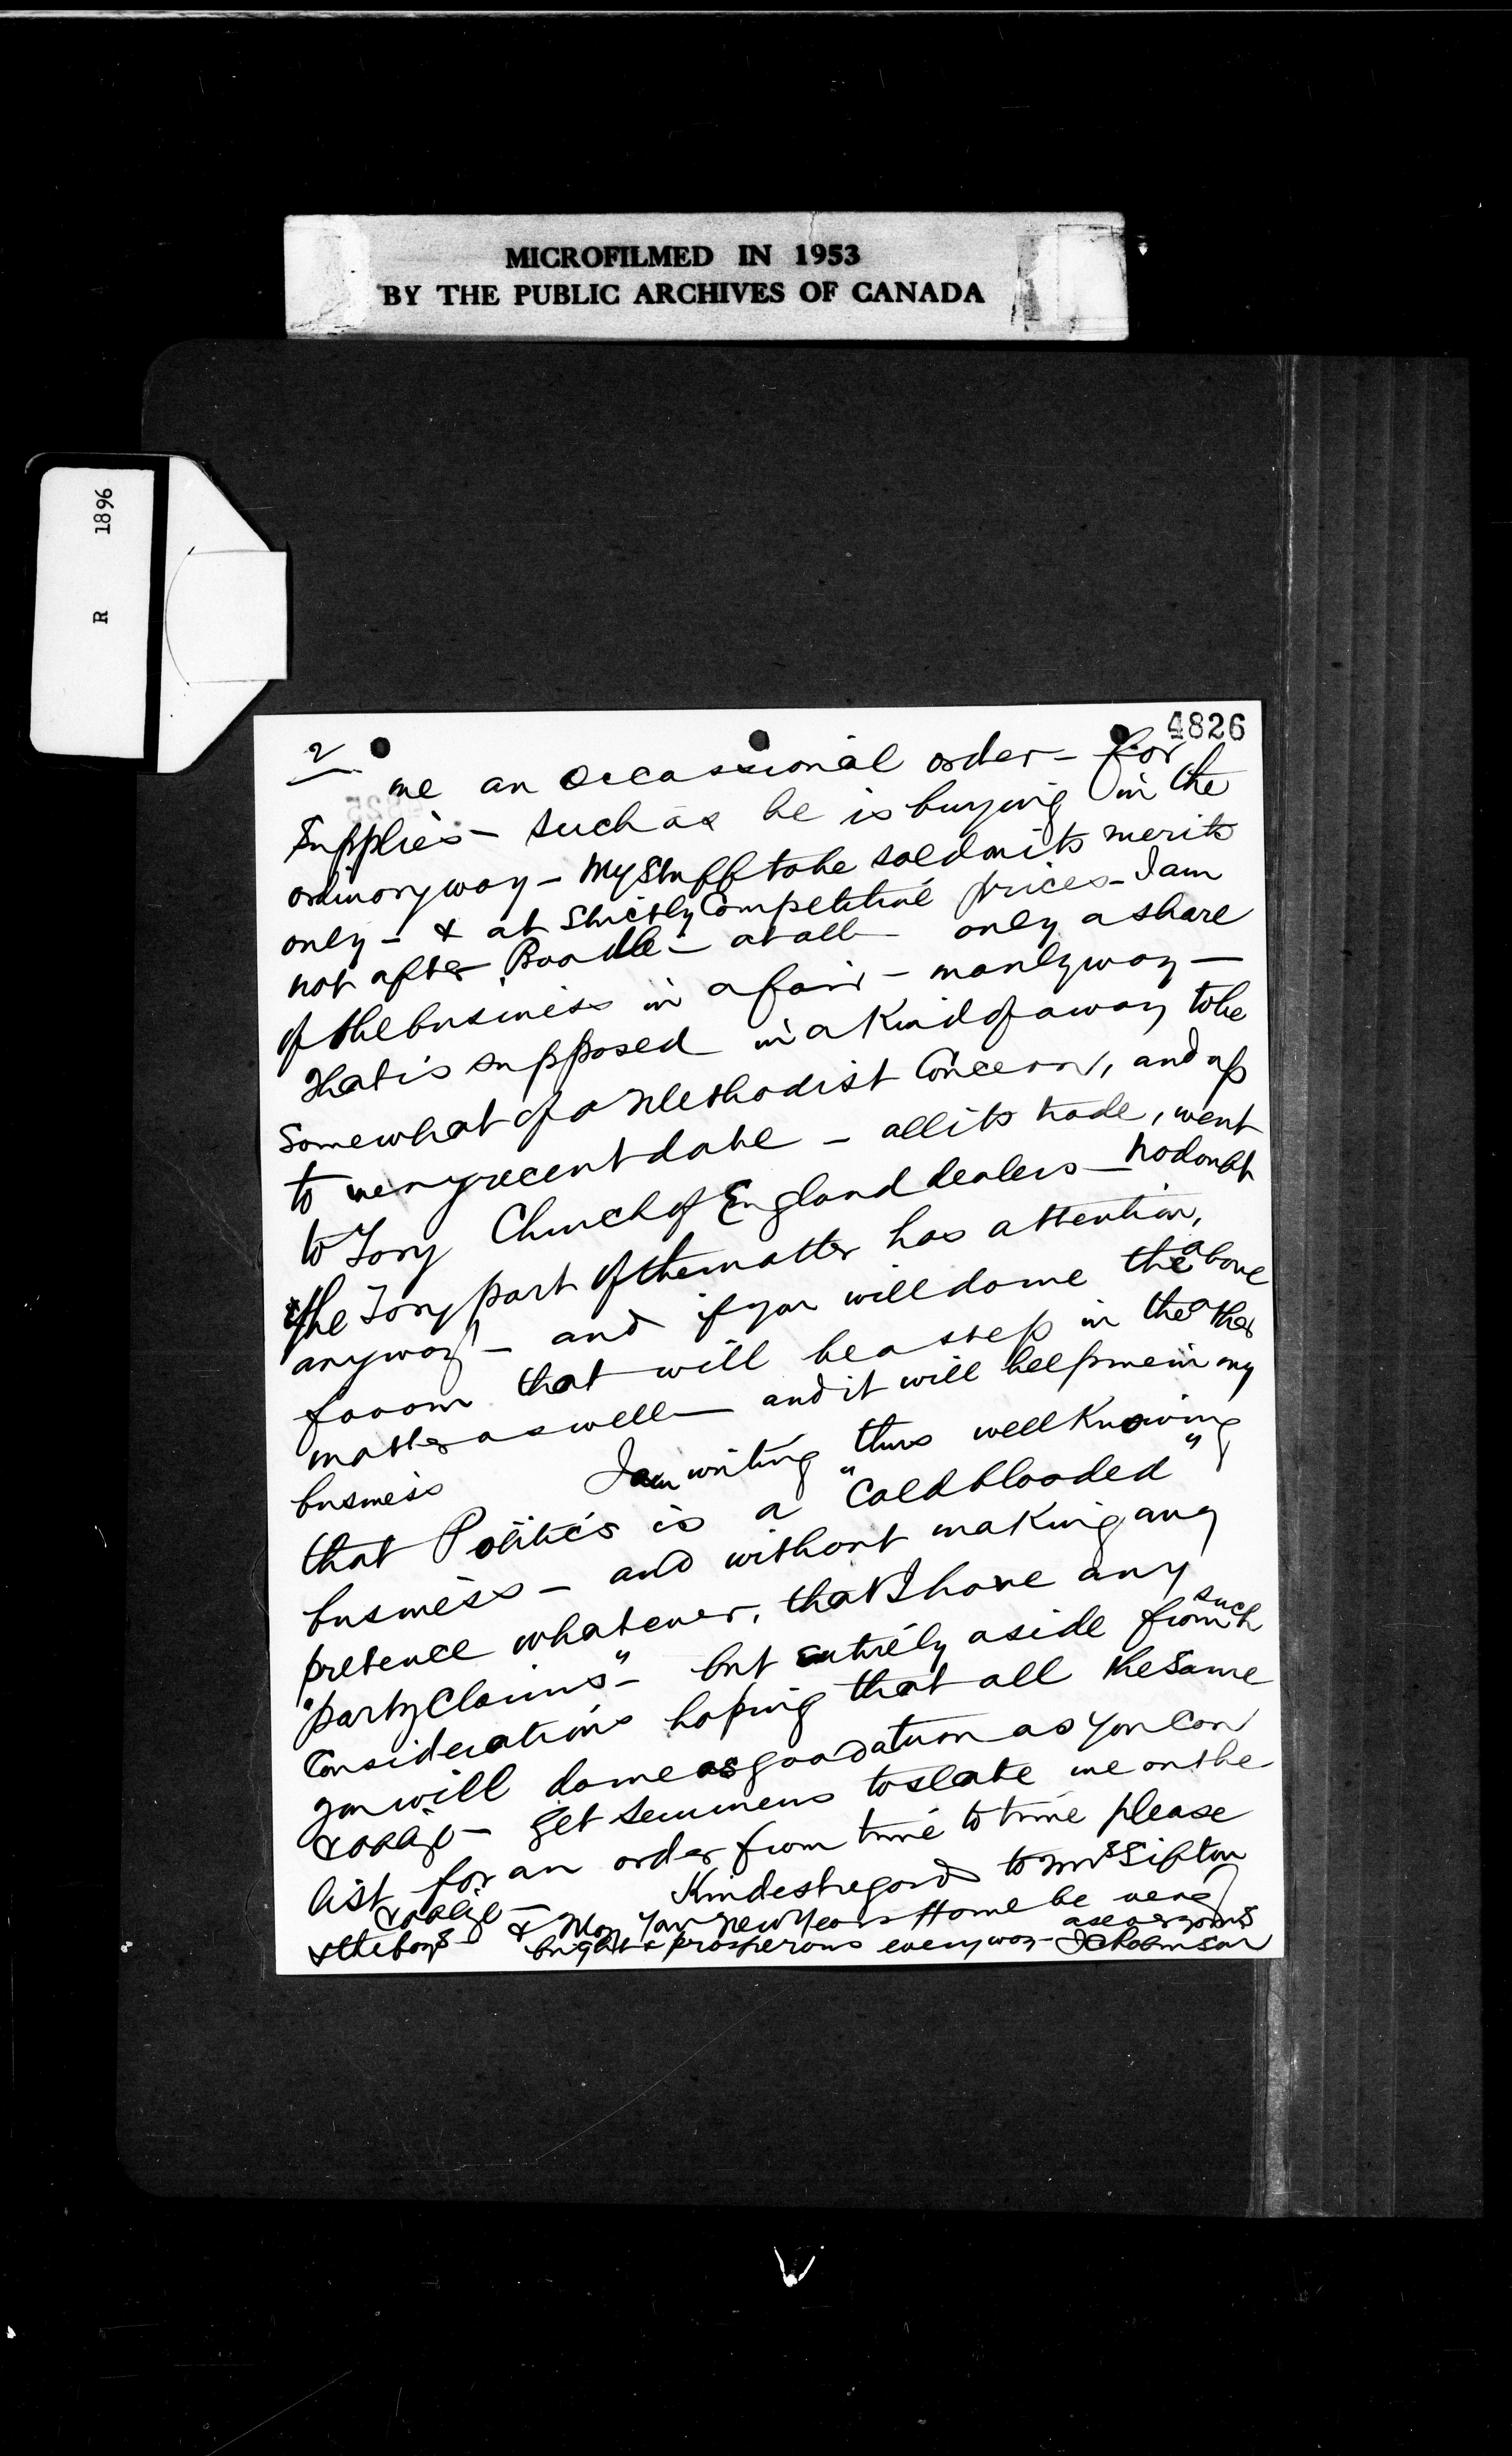 MICROFILMED IN 1953
BY THE PUBLIC ARCHIVES OF CANADA
R 1896
4826
2
me an occassional order - for
supplies - such as he is buying in the
ordinary way - My Stuff to be sold on its merits
only - & at Strictly Competitive prices - I am
not after Boodle - at all - only a share
of the business in a fair - manly way -
That is supposed in a Kind of a way to be
Somewhat of a Methodist Concern, and up
to very recent date - all its trade, went
to Tory Church of England dealers - no doubt
the Tory part of the matter has attention,
anyway - and if you will do me the above
favour that will be a step in the other
matter as well - and it will help me in my
business I am writing thus well Knowing
that Politics is a "Cold blooded"
business - and without making any
pretence whatever, that I have any
"party Claims" - but entirely aside from such
Considerations hoping that all the Same
you will do me as good a turn as you Can
& oblige - get Semmens to slate me on the
list for an order from time to time please
& oblige - Kindest regards to Mrs Sifton
& the boys - & May Your New Years Home be very
bright & prosperous every way - as ever yours